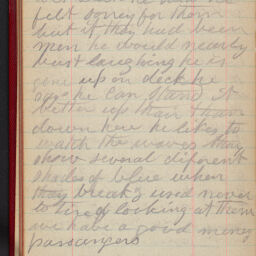 felt sorrey for them
but if they had been
men he would nearly
bust laughing he is
gone up on deck he
says he can stand it
better up than than
down here he likes to
watch the waves they
show several diferent
shades of blue when
they break I used never
to tire of looking at them
we have a good meney
passangers